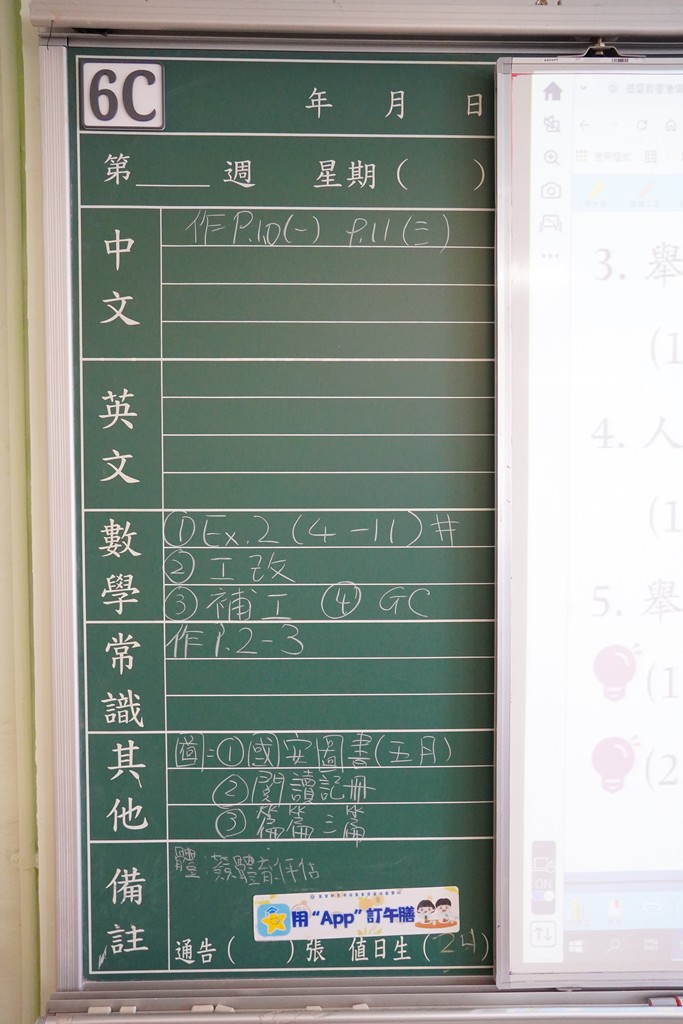 6C
年 月 日
第____週 星期( )
中文
作P.10(一) P.11(三)
英文
數學
①Ex.2(4-11)#
②工改
③補工 ④GC
常識
作P.2-3
其他
圖:①國安圖書(五月)
②閱讀記冊
③篇篇三篇
備註
體:簽體育評估
用“App”訂午膳
通告( )張 值日生(24)
3. 舉
(1
4. 人
(1
5. 舉
(1
(2
ON